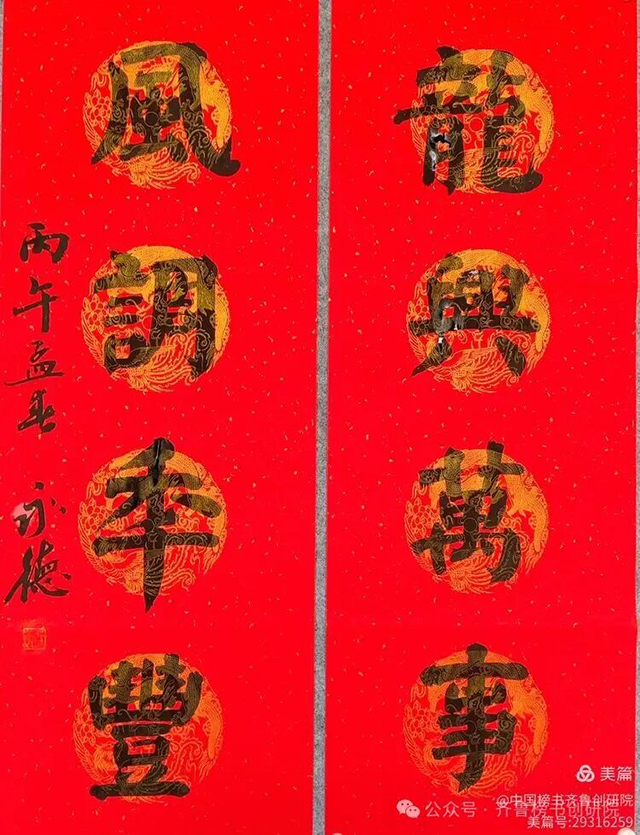 龍興萬事
風調年豐
丙午孟春 永德
美篇
@中国榜书齐鲁创研院
公众号·齐鲁榜书创研院
美篇号:29316259